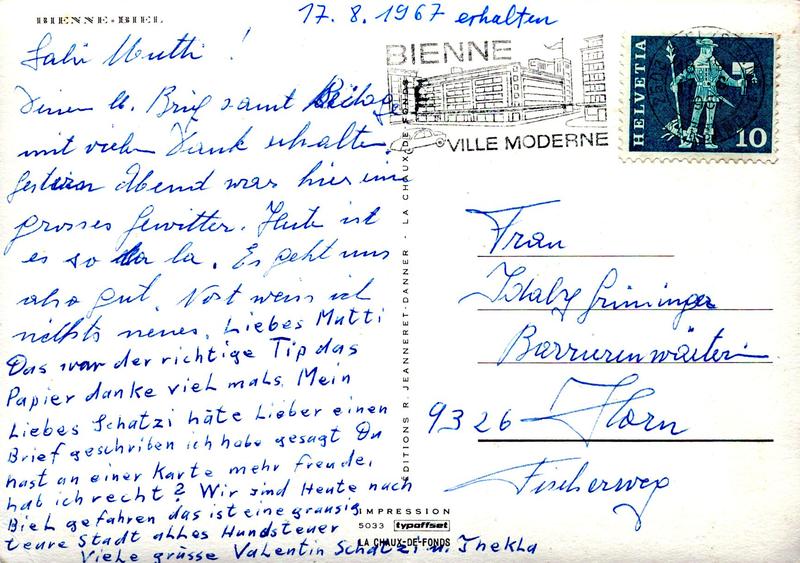 BIENNE-BIEL
17. 8. 1967 erhalten
Salü Mutti !
Deinen lb. Brief samt Beilag
mit vielem Dank erhalten.
Gestern Abend war hier ein
grosses Gewitter. Heute ist
es so la la. Es geht uns
also gut. Sonst weiss ich
nichts neues. Liebes Mutti
Das war der richtige Tip das
Papier danke viel mals. Mein
Liebes Schatzi häte Lieber einen
Brief geschriben ich habe gesagt Du
hast an einer Karte mehr freude.
hab ich recht? Wir sind Heute nach
Biel gefahren das ist eine grausig
teure Stadt alles Hundsteuer
Viele grüsse Valentin Schatzi u. Thekla
EDITIONS R. JEANNERET-DANNER - LA CHAUX-DE-FONDS
IMPRESSION
5033 typoffset
LA CHAUX-DE-FONDS
BIENNE
VILLE MODERNE
HELVETIA
10
Frau
Idaly Grüninger
Barrierenwärterin
9326 Horn
Fischerweg